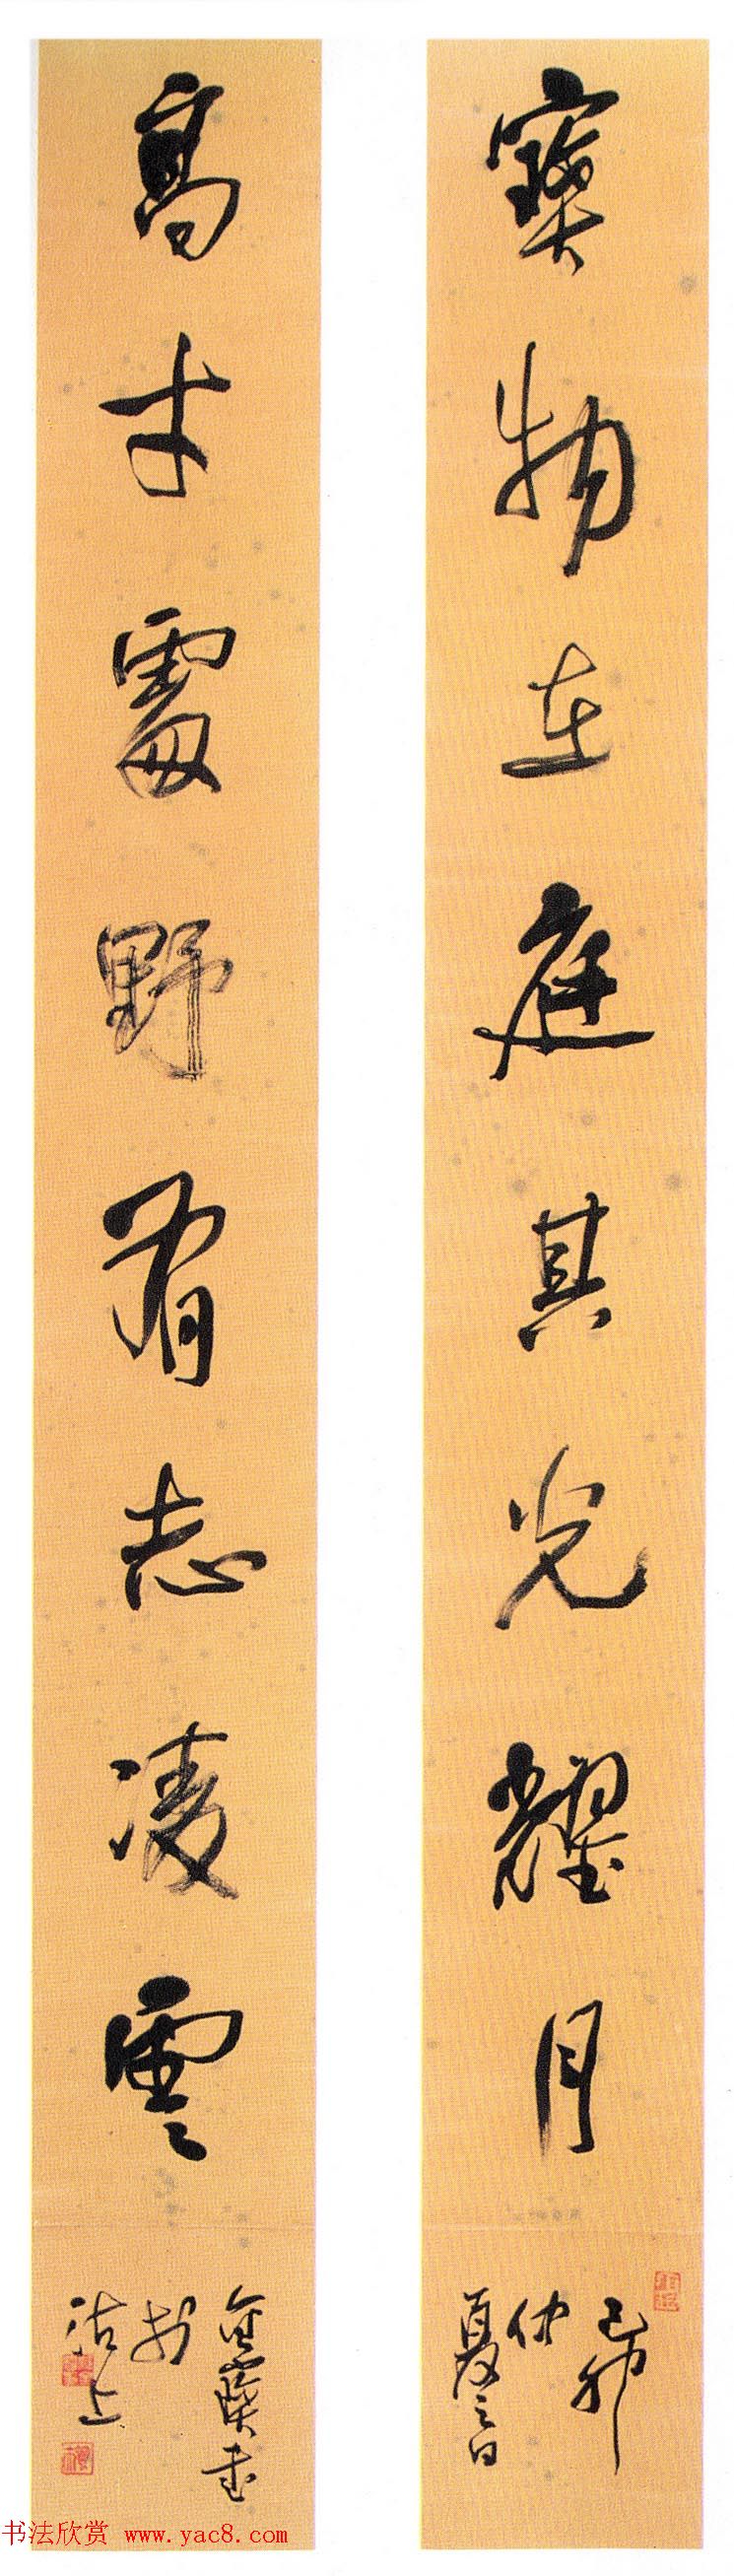 寶物在庭其光耀月
己卯
仲
夏之日
高才處野有志凌雲
金寶書
於
沽上
书法欣赏 www.yac8.com